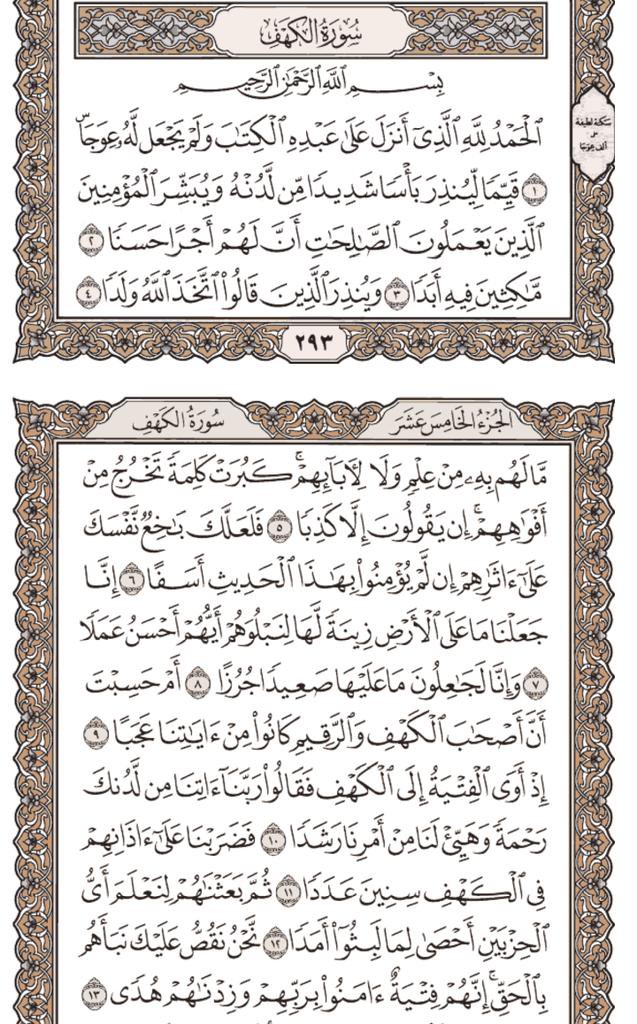 سُورَةُ الكَهْفِ
بِسْمِ اللَّهِ الرَّحْمَٰنِ الرَّحِيمِ
الْحَمْدُ لِلَّهِ الَّذِي أَنزَلَ عَلَىٰ عَبْدِهِ الْكِتَابَ وَلَمْ يَجْعَل لَّهُ عِوَجَاۜ
سكتة لطيفة
على
ألف عوجا
١ قَيِّمًا لِّيُنذِرَ بَأْسًا شَدِيدًا مِّن لَّدُنْهُ وَيُبَشِّرَ الْمُؤْمِنِينَ
الَّذِينَ يَعْمَلُونَ الصَّالِحَاتِ أَنَّ لَهُمْ أَجْرًا حَسَنًا ٢
مَّاكِثِينَ فِيهِ أَبَدًا ٣ وَيُنذِرَ الَّذِينَ قَالُوا اتَّخَذَ اللَّهُ وَلَدًا ٤
٢٩٣
الجُزْءُ الخَامِسَ عَشَرَ
سُورَةُ الكَهْفِ
مَّا لَهُم بِهِۦ مِنْ عِلْمٍ وَلَا لِآبَائِهِمْ ۚ كَبُرَتْ كَلِمَةً تَخْرُجُ مِنْ
أَفْوَاهِهِمْ ۚ إِن يَقُولُونَ إِلَّا كَذِبًا ٥ فَلَعَلَّكَ بَاخِعٌ نَّفْسَكَ
عَلَىٰٓ ءَاثَارِهِمْ إِن لَّمْ يُؤْمِنُوا بِهَٰذَا الْحَدِيثِ أَسَفًا ٦ إِنَّا
جَعَلْنَا مَا عَلَى الْأَرْضِ زِينَةً لَّهَا لِنَبْلُوَهُمْ أَيُّهُمْ أَحْسَنُ عَمَلًا
٧ وَإِنَّا لَجَاعِلُونَ مَا عَلَيْهَا صَعِيدًا جُرُزًا ٨ أَمْ حَسِبْتَ
أَنَّ أَصْحَابَ الْكَهْفِ وَالرَّقِيمِ كَانُوا مِنْ ءَايَاتِنَا عَجَبًا ٩
إِذْ أَوَى الْفِتْيَةُ إِلَى الْكَهْفِ فَقَالُوا رَبَّنَا ءَاتِنَا مِن لَّدُنكَ
رَحْمَةً وَهَيِّئْ لَنَا مِنْ أَمْرِنَا رَشَدًا ١٠ فَضَرَبْنَا عَلَىٰٓ ءَاذَانِهِمْ
فِي الْكَهْفِ سِنِينَ عَدَدًا ١١ ثُمَّ بَعَثْنَاهُمْ لِنَعْلَمَ أَيُّ
الْحِزْبَيْنِ أَحْصَىٰ لِمَا لَبِثُوا أَمَدًا ١٢ نَّحْنُ نَقُصُّ عَلَيْكَ نَبَأَهُم
بِالْحَقِّ ۚ إِنَّهُمْ فِتْيَةٌ ءَامَنُوا بِرَبِّهِمْ وَزِدْنَاهُمْ هُدًى ١٣